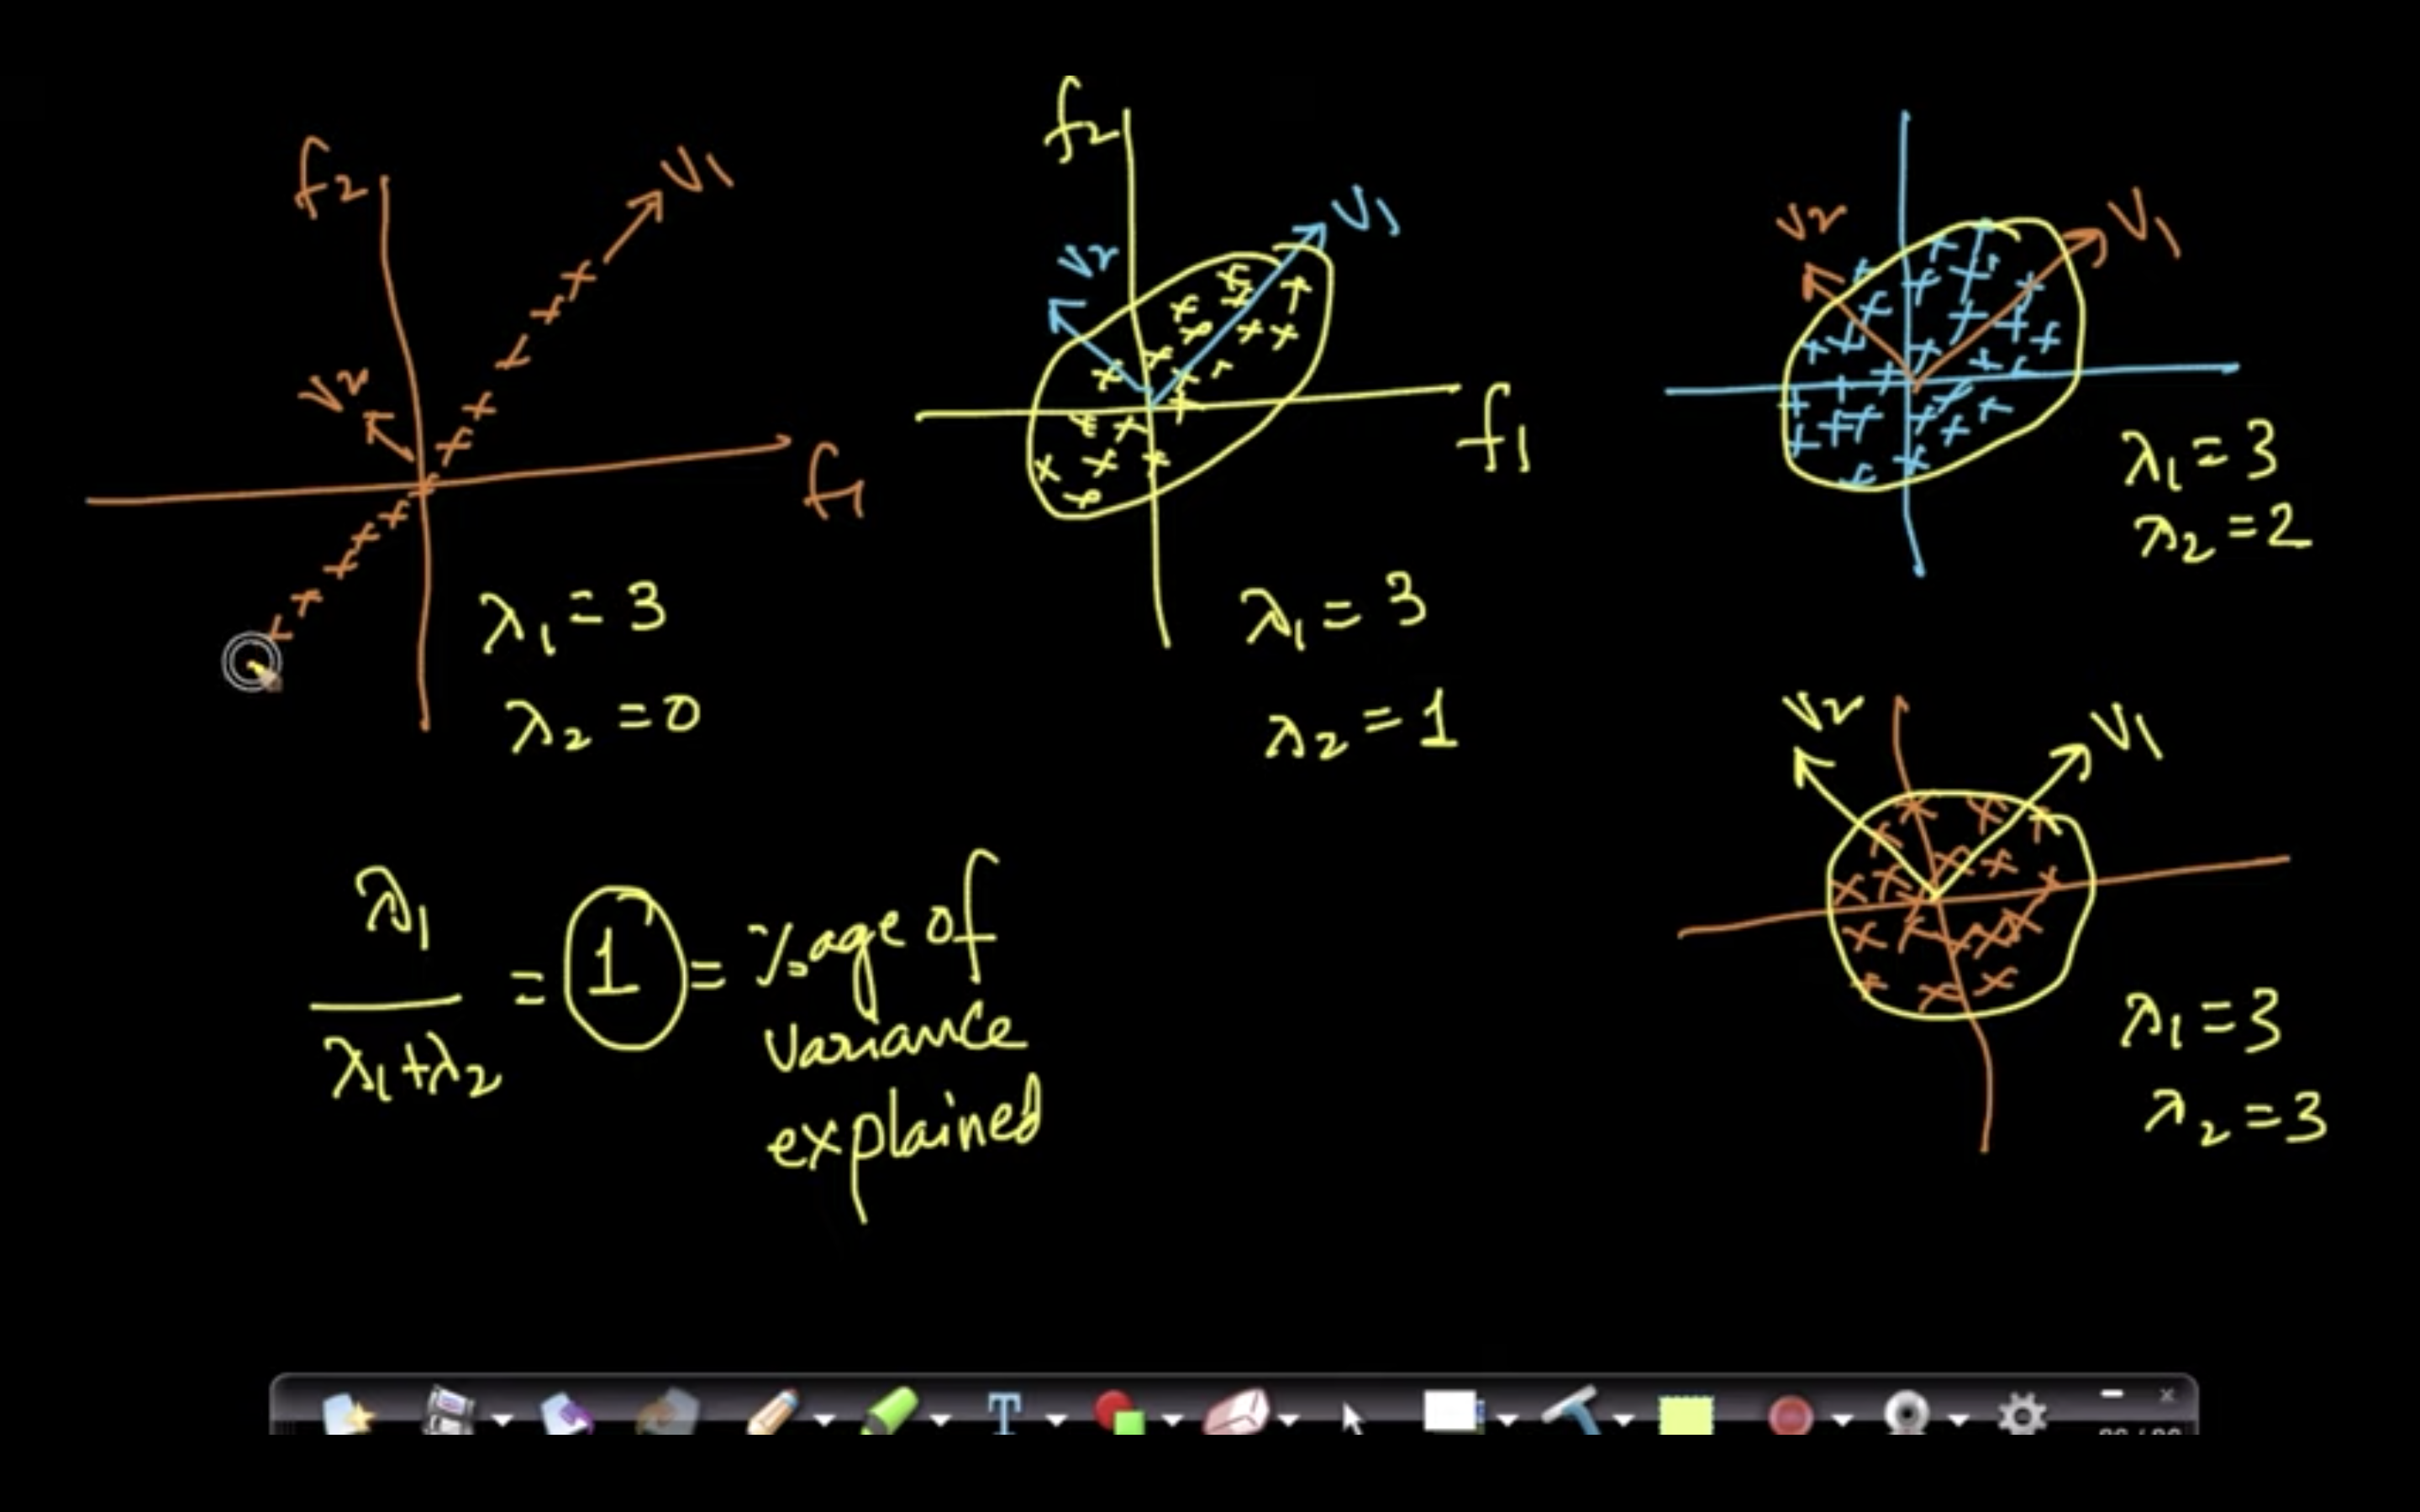 f2
V1
V2
f1
λ1 = 3
λ2 = 0
f2
V1
V2
f1
λ1 = 3
λ2 = 1
V2
V1
λ1 = 3
λ2 = 2
V2
V1
λ1 = 3
λ2 = 3
λ1
λ1+λ2
= 1 = %age of
variance
explained
T